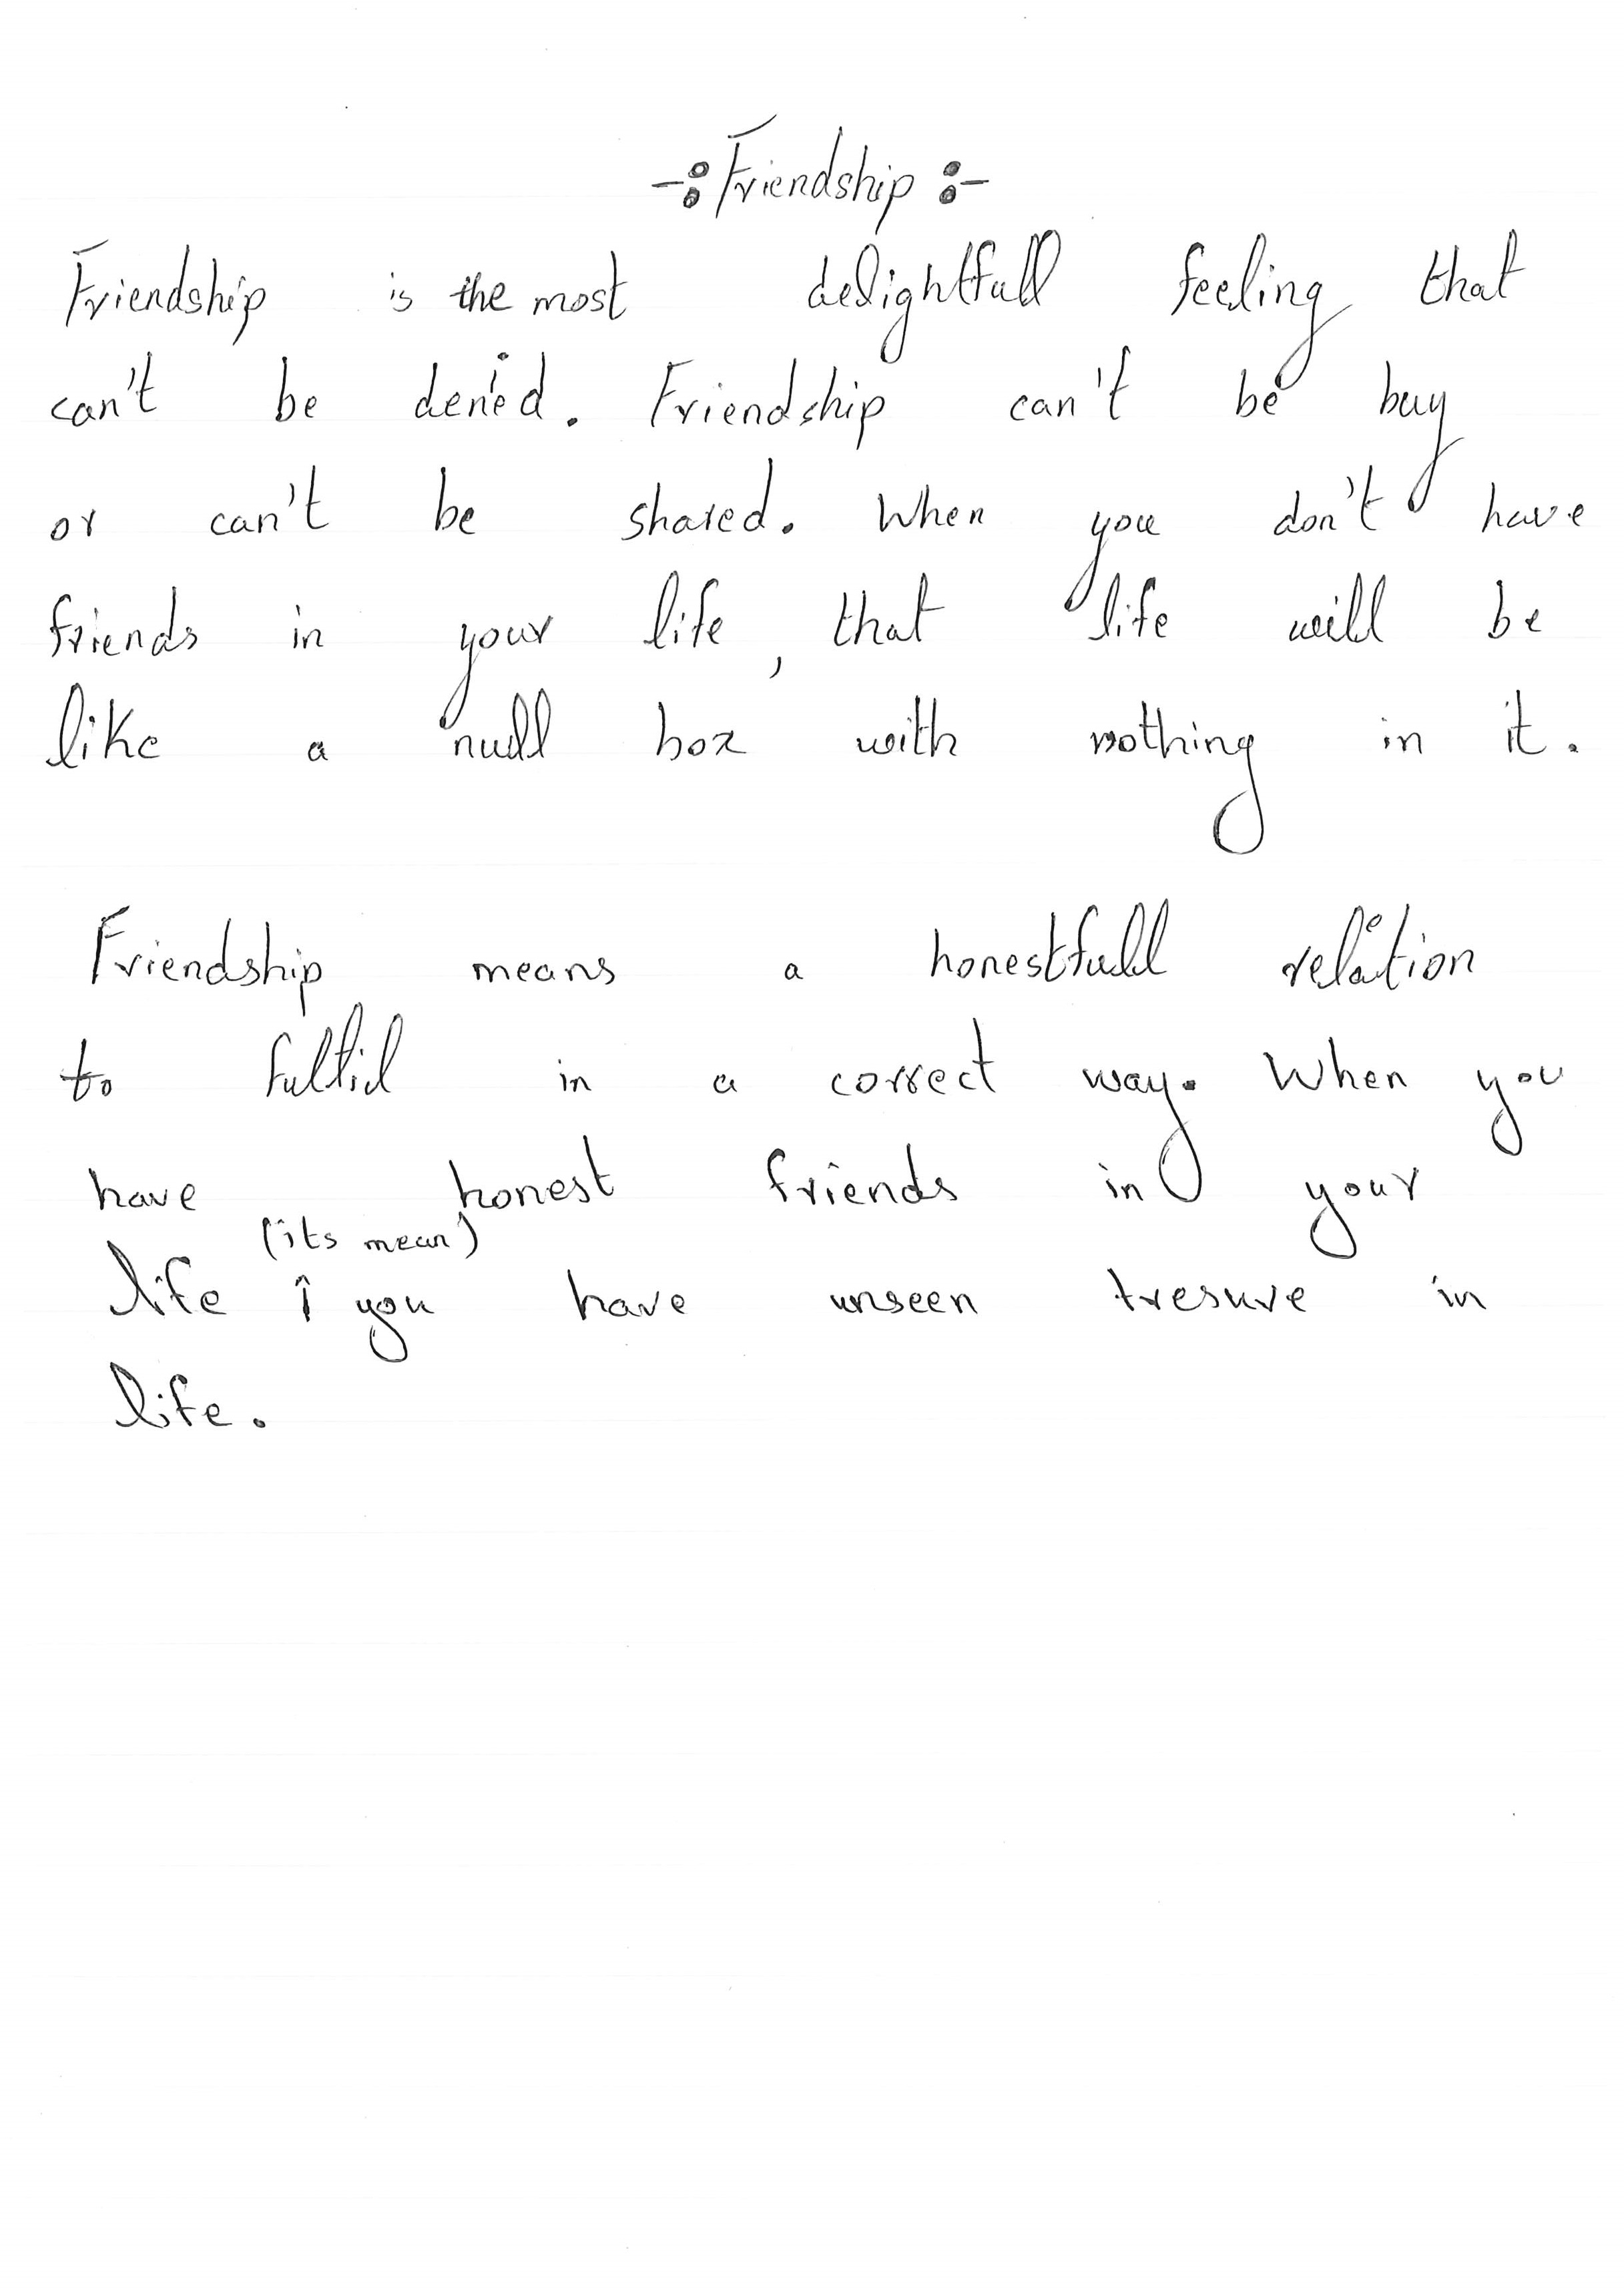 -: Friendship :-
Friendship is the most delightfull feeling that
can't be denied. Friendship can't be buy
or can't be shared. When you don't have
friends in your life, that life will be
like a null box with nothing in it.
Friendship means a honestfull relation
to fulfil in a correct way. When you
have honest friends in your
(its mean)
life you have unseen tresure in
life.